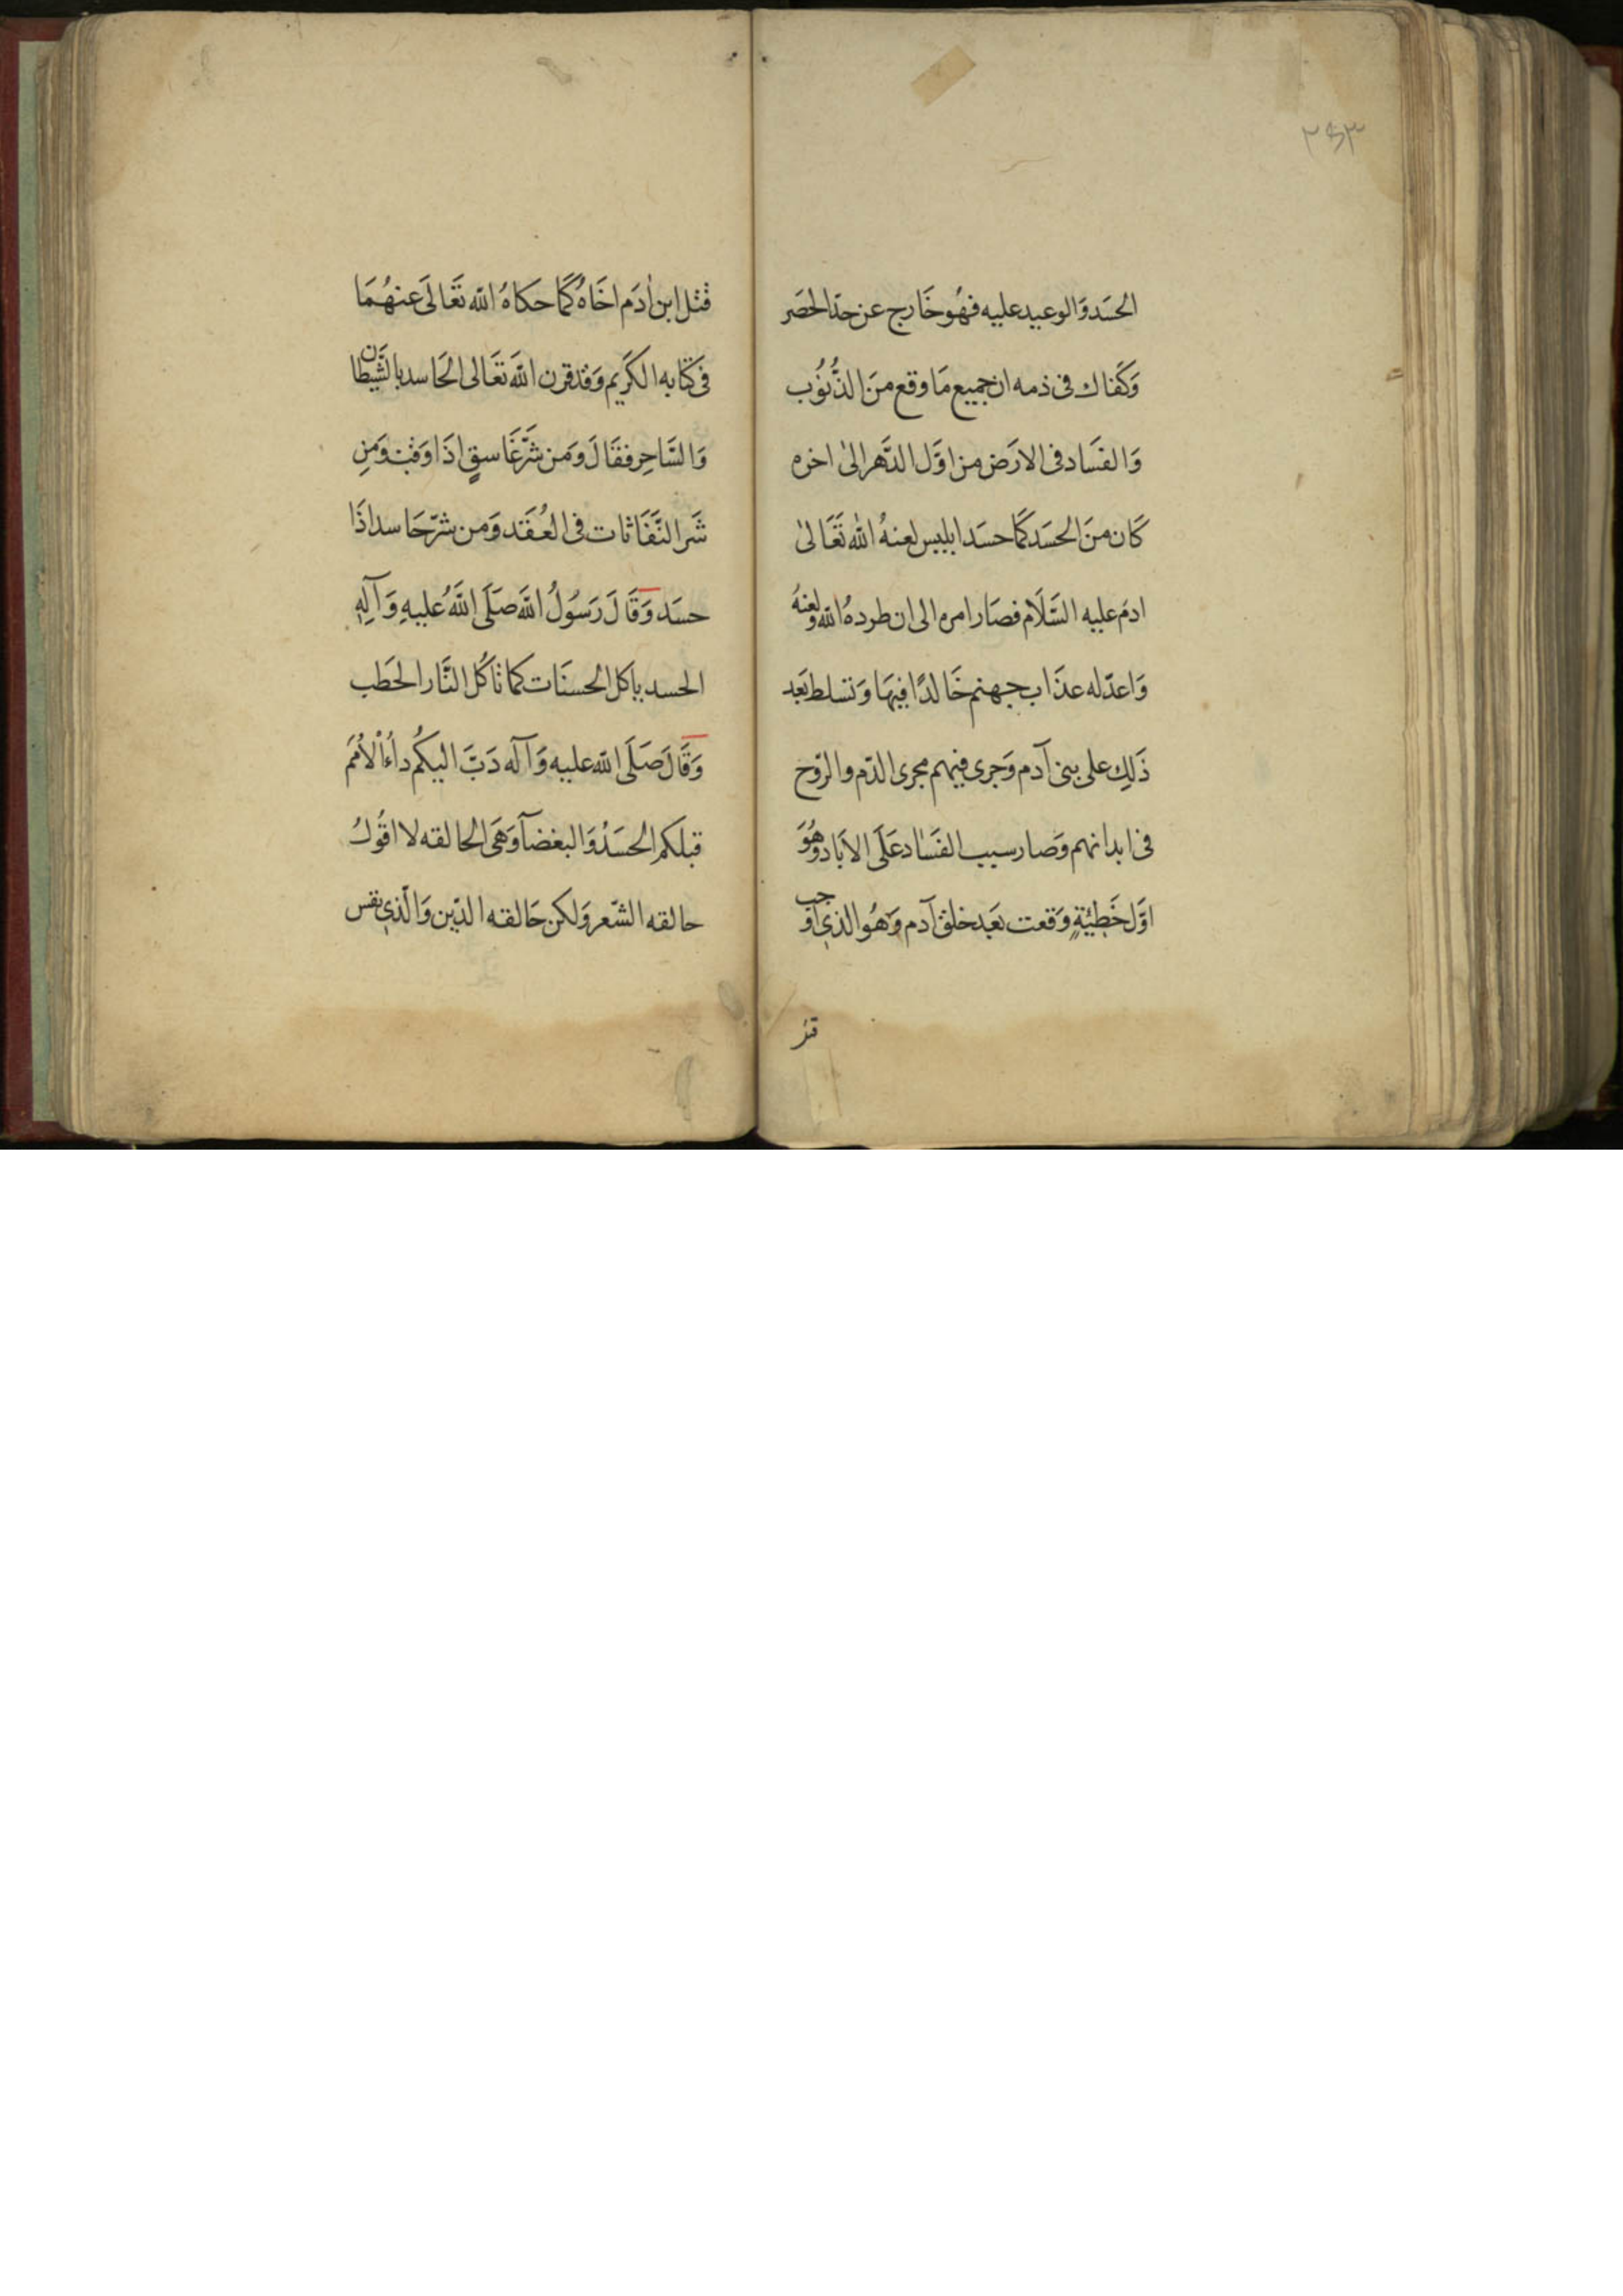 ٣٤٣
الحَسَد وَالوعيد عليه فهُو خَارج عن حدّ الحَصَر
وَكَفاك فى ذمه ان جميع مَا وقع منَ الذُّنُوب
وَالفسَاد فى الارَض من اوَّل الدَّهر الىٰ اخره
كَان منَ الحَسَد كَمَا حسَد ابليس لعنهُ الله تَعَالىٰ
ادمَ عليه السَّلَام فصَار امره الى ان طردهُ الله ولعنهُ
وَاعدّ له عذَاب جهنم خَالدًا فيهَا وَتسلط بَعد
ذَلِك على بنى آدم وَجرى فيهم مجرى الدّم والرّوح
فى ابدانهم وَصار سبب الفَسَاد عَلَى الاَباد وَهُوَ
اوَّل خَطِيْئَةٍ وَقعت بعَد خلق آدم وَهُو الذي اوجب
قتل
قتْل ابن اٰدَم اخَاهُ كَمَا حكاهُ الله تَعَالَى عنهُمَا
فى كتَابه الكَريم وَقد قرن اللهَ تَعَالى الحَاسد بالشَّيطَان
وَالسَّاحِر فقَالَ وَمَن شَرّ غَاسقٍ اذَا وَقبْ وَمِن
شَر النَّفَاثات فى العُقَد وَمن شرّ حَاسد اذَا
حسَد وَقَالَ رَسُوْلُ الله صَلَى اللهُ عليهِ وَآلِهٖ
الحسد ياكل الحسنَات كمَا تاكُل النَّار الحَطَب
وَقَالَ صَلَى الله عليه وَآله دَبَّ اليكُم دَاءُ الْاُمَم
قبلكم الحَسَدُ وَالبغضآ وَهَى الحَالقه لا اقُولُ
حالقه الشّعر وَلكن حَالقه الدّين وَالَّذي نفس